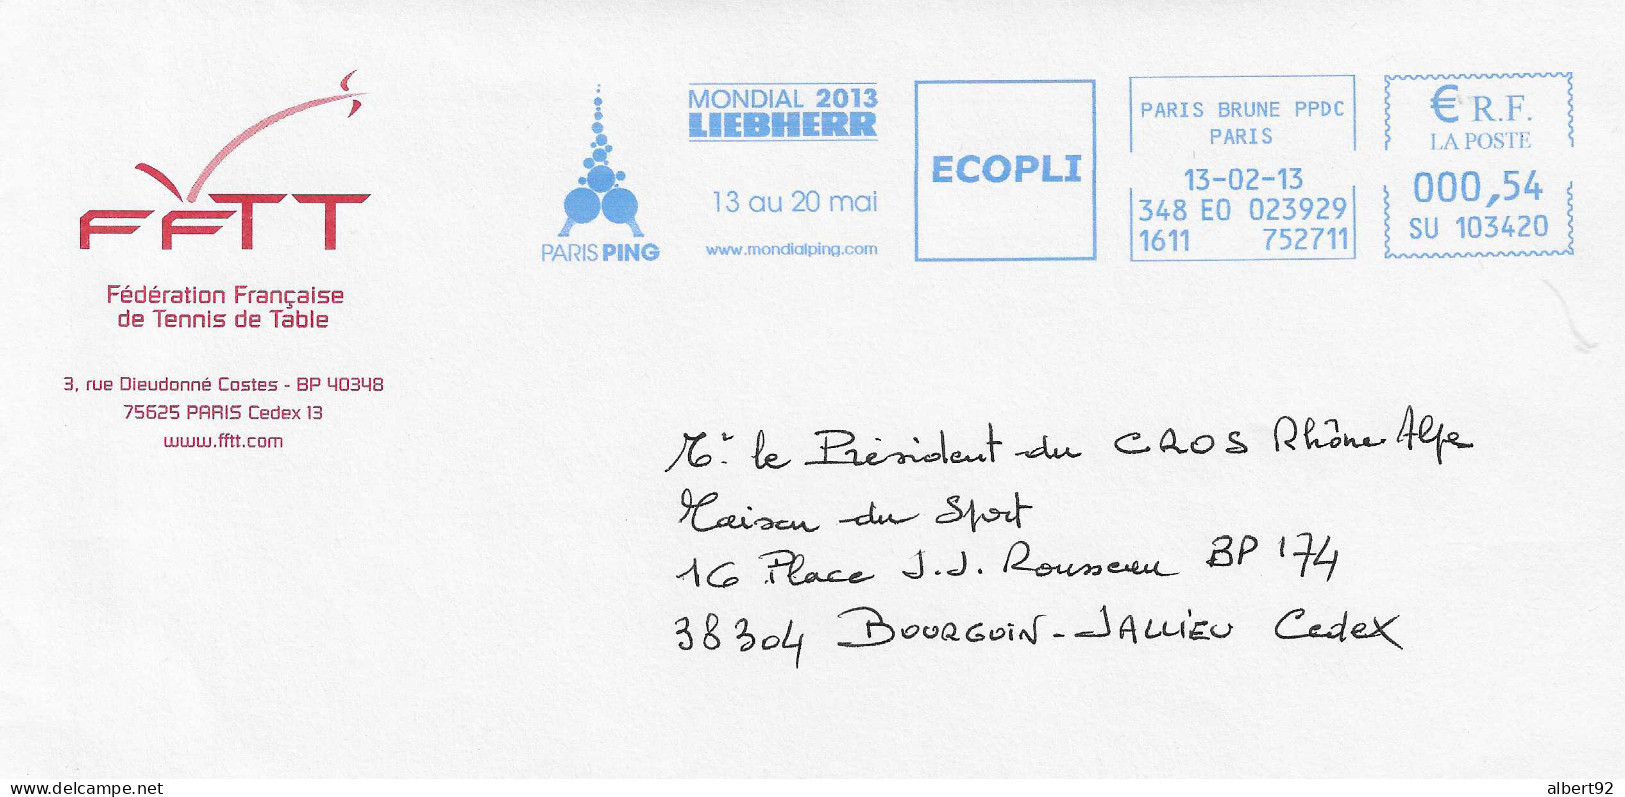 FFTT
Fédération Française
de Tennis de Table
3, rue Dieudonné Costes - BP 40348
75625 PARIS Cedex 13
www.fftt.com
PARIS PING
MONDIAL 2013
LIEBHERR
13 au 20 mai
www.mondialping.com
ECOPLI
PARIS BRUNE PPDC
PARIS
13-02-13
348 EO 023929
1611 752711
€ R.F.
LA POSTE
000,54
SU 103420
Mr le Président du CROS Rhône-Alpe
Maison du Sport
16 Place J.J. Rousseau BP 174
38304 BOURGOIN-JALLIEU Cedex
delcampe.net
albert92